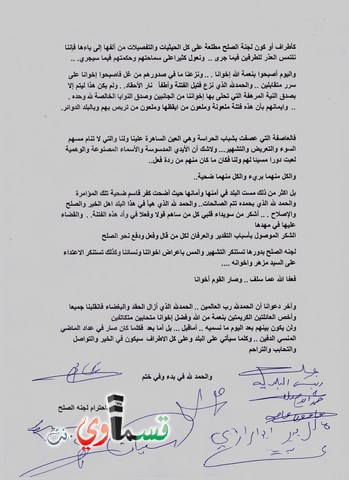 كأطراف أو كون لجنة الصلح مطلعة على كل الحيثيات والتفصيلات من ألفها إلى ياءها فإننا
نلتمس العذر للطرفين فيما جرى .. ونعول كثيرا على سماحتهم وحكمتهم فيما سيجري..
واليوم أصبحوا بنعمة الله إخوانا . . ونزعنا ما في صدورهم من غل فأصبحوا إخوانا على
سرر متقابلين .. والحمدلله الذي نزع فتيل الفتنة وأطفأ نار الأحقاد. . ولم يكن هذا ليتم إلا
بصدق النية المرهفة التي تحلى بها إخواننا من الجانبين وصدق النوايا الخالصة لله وحده .
. وإيمانهم بأن هذه فتنة ملعونة وملعون من ايقظها وملعون من تربص بهم وبالبلد الدوائر.
فالعاصفة التي عصفت بشباب الحراسة وهي العين الساهرة علينا ولنا والتي لا تنام مسهم
السوء والتعريض والتشهير... ولاشك أن الأيدي المدسوسة والأسماء المصنوعة والوهمية
لعبت دورا مسيئا لهم ولنا فكان ما كان منهم من ردة فعل..
والكل منهم بريء والكل منهما ضحية..
بل اكثر من ذلك مست البلد في أمنها وأمانها حيث أضحت كفر قاسم ضحية تلك المؤامرة
والحمد لله الذي بحمده تتم الصالحات.. والحمد لله الذي هيأ في هذا البلد اهل الخير والصلح
والإصلاح . .. أشكر من سويداء قلبي كل من ساهم قولا وفعلا في وأد هذه الفتنة. . والقضاء
عليها في مهدها
الشكر الموصول بأسباب التقدير والعرفان لكل من قال وفعل ودفع نحو الصلح
لجنه الصلح بدورها تستنكر التشهير والمس باعراض اخواننا ونسائنا وكذلك تستنكر الاعتداء
على السيد مزهر واخوانه ....
فعفا الله عما سلف .. وصار القوم أخوانا
وآخر دعوانا أن الحمدلله رب العالمين .. الحمدلله الذي أزال الحقد والبغضاء فانقلبنا جميعا
وأخص العائلتين الكريمتين بنعمة من الله وفضل إخوانا متحابين متكاتفين
ولن يكون بينهم بعد اليوم ما نسميه .. أماقبل... بل أما بعد فكلما كان صار في عداد الماضي
المنسي الدفين .. وكلما سيأتي على البلد وعلى كل الاطراف سيكون في الخير والتواصل
والتحابب والتراحم
والحمد لله في بدء وفي ختم
احترام لجنه الصلح
رئيس البلدية
قسماوي
نت